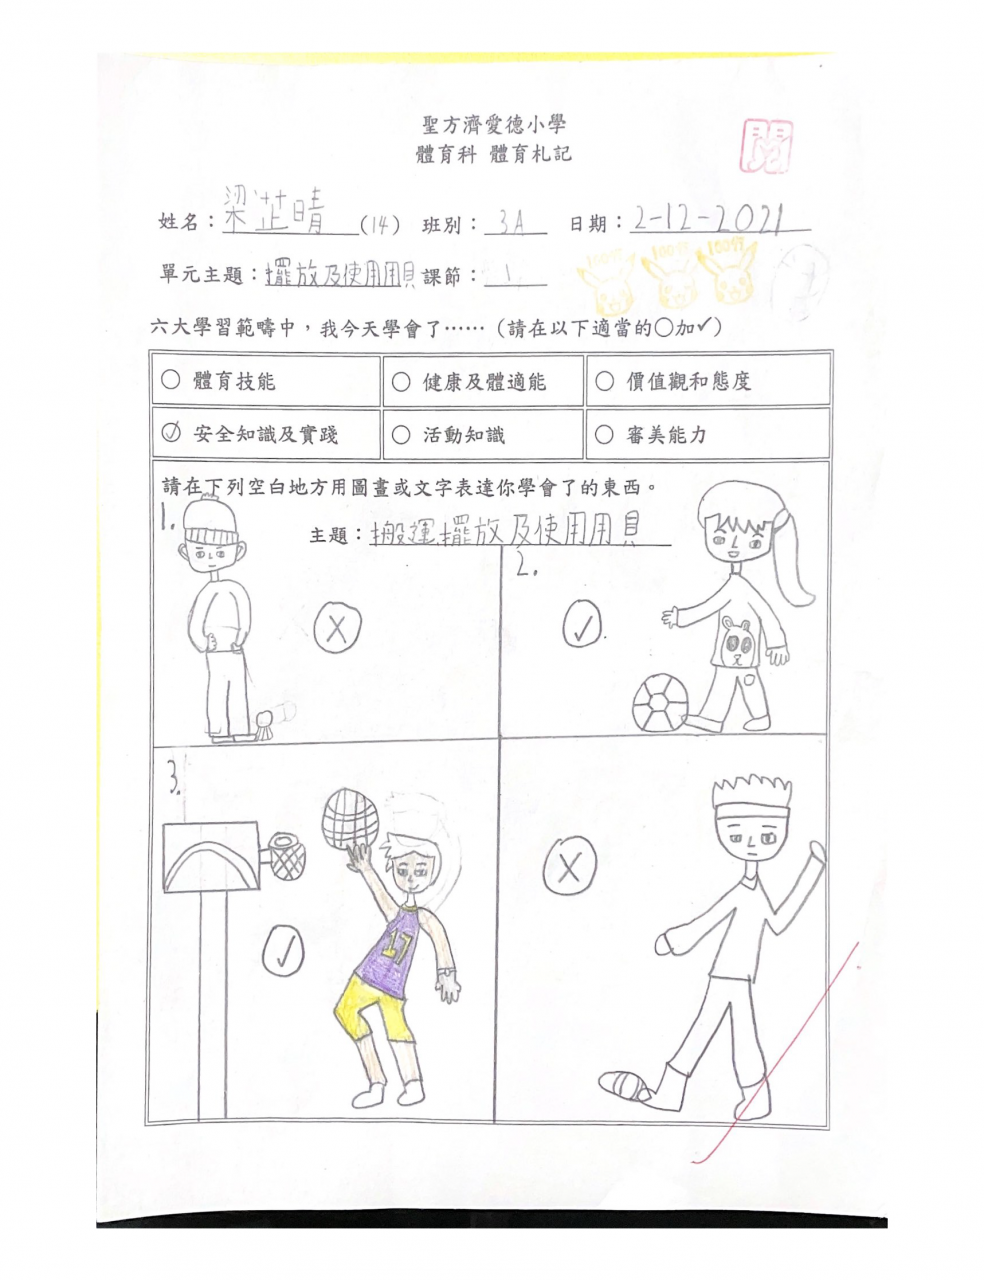 聖方濟愛德小學
體育科 體育札記
閱
姓名：梁芷晴(14) 班別：3A 日期：2-12-2021
100分 100分 100分
單元主題：擺放及使用用具 課節：1
六大學習範疇中，我今天學會了……（請在以下適當的○加✓）
○ 體育技能 ○ 健康及體適能 ○ 價值觀和態度
✓ 安全知識及實踐 ○ 活動知識 ○ 審美能力
請在下列空白地方用圖畫或文字表達你學會了的東西。
主題：搬運擺放及使用用具
1.
X
2.
✓
3.
17
✓
X